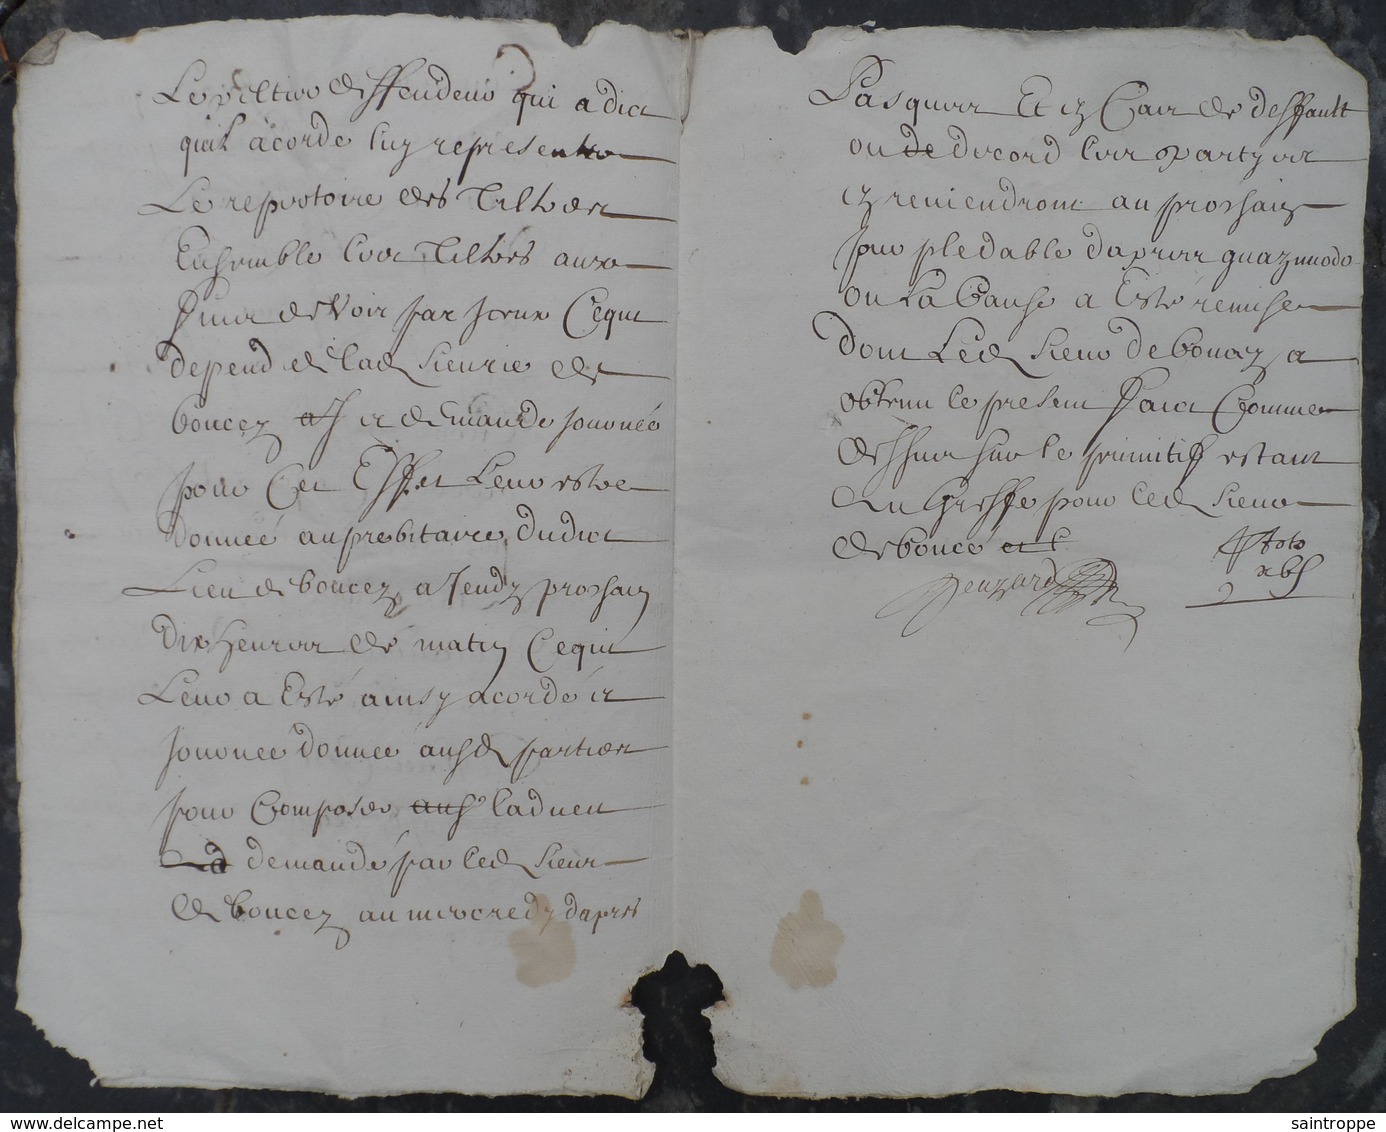 deffendeur qui a dict
quil acorde luy representer
Le repertoire des Tiltres
Ensemble leur Tiltres aux
de voir par iceux Cequi
depend de lad sieurie de
boucey et demande journée
pour Cet Effet Leur estre
donnée au presbitaire dudict
Lieu de boucey a Jeudy prochain
dix heures de matin Cequi
Leur a Esté ainsy acordé et
journée donnée ausd parties
pour Composer ladueu
demandé par led sieur
de boucey au mercredy dapres
Pasques Et en Cas de deffault
ou de discord leur partyes
en reviendront au prochain
jour pledable dapres quazimodo
ou La Cause a Esté remise
dont Led sieur de boucey a
obtenu le present Comme
dessus sur le primitif estant
au Greffe pour led sieur
de boucé
saintroppe